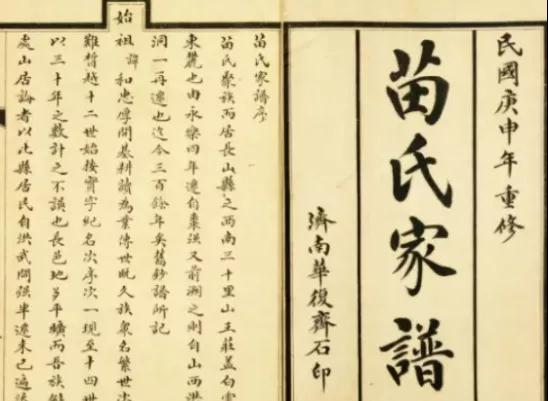 民國庚申年重修
苗氏家譜
濟南華復齋石印
苗氏家譜序
苗氏聚族而居長山縣之西南三十里山王莊蓋白雲
東麓也由永樂四年遷自棗强又前溯之則自山西洪
洞一再遷也迄今三百餘年矣舊鈔譜所記
始祖諱和忠厚開基耕讀為業傳世旣久族衆名繁世次
難晳越十二世始按實字紀名次序次一現至十四世
以三十年之數計之不誤也長邑地多平曠而吾族
處山居論者以此縣居民自洪武間强半遷来已遍